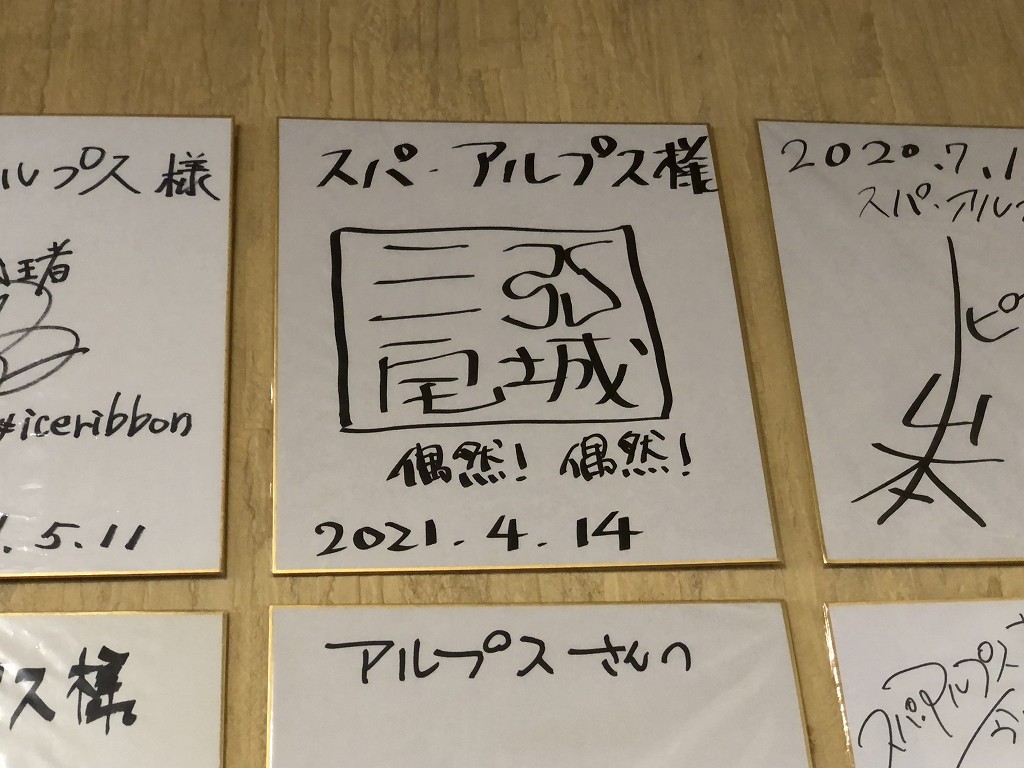 ルプス様
王者
#iceribbon
.5.11
スパ・アルプス様
三
尾城
偶然! 偶然!
2021.4.14
2020.7.1
スパ・アル
ピ
ス様
アルプスさんの
スパ・アルプス